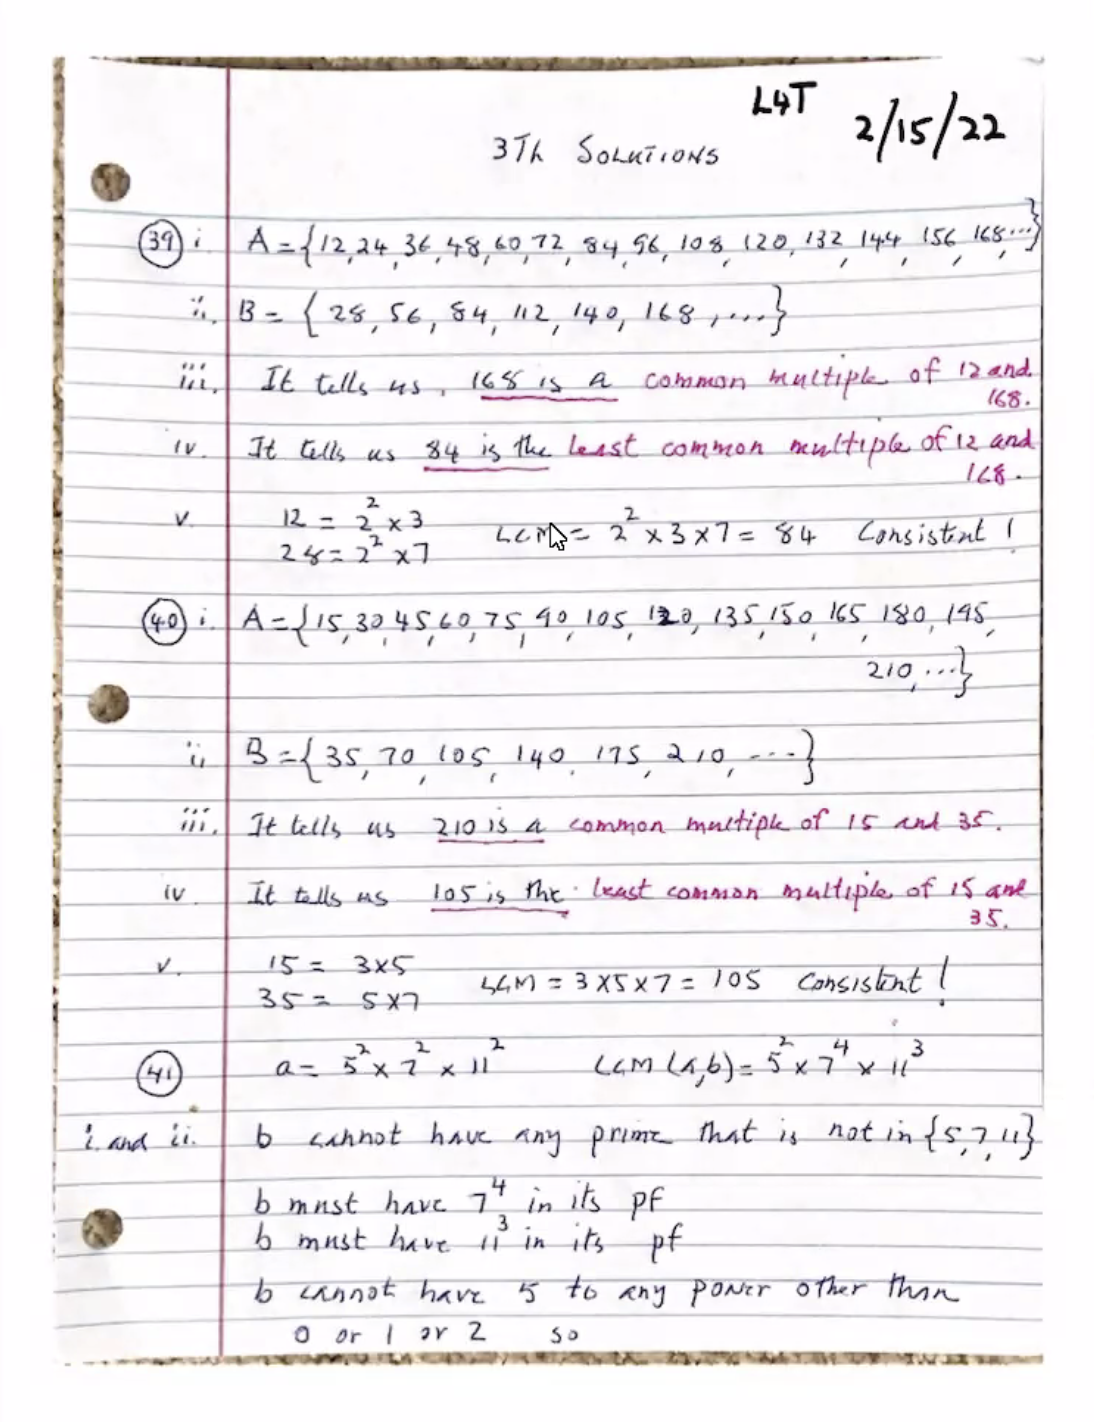 L4T
2/15/22
3Th SOLUTIONS
39 i A = {12, 24, 36, 48, 60, 72, 84, 96, 108, 120, 132, 144, 156, 168, ...}
ii. B = {28, 56, 84, 112, 140, 168, ....}
iii. It tells us, 168 is a common multiple of 12 and
168.
iv. It tells us 84 is the least common multiple of 12 and
168.
v. 12 = 2² × 3
28 = 2² × 7
LCM = 2² × 3 × 7 = 84 Consistent !
40 i. A = {15, 30, 45, 60, 75, 90, 105, 120, 135, 150, 165, 180, 195,
210, ...}
ii B = {35, 70, 105, 140, 175, 210, ....}
iii. It tells us 210 is a common multiple of 15 and 35.
iv It tells us 105 is the least common multiple of 15 and
35.
v. 15 = 3×5
35 = 5×7
LCM = 3×5×7 = 105 Consistent !
41 a = 5² × 7² × 11² LCM (a,b) = 5² × 7⁴ × 11³
i. and ii. b cannot have any prime that is not in {5, 7, 11}
b must have 7⁴ in its pf
b must have 11³ in its pf
b cannot have 5 to any power other than
0 or 1 or 2 so